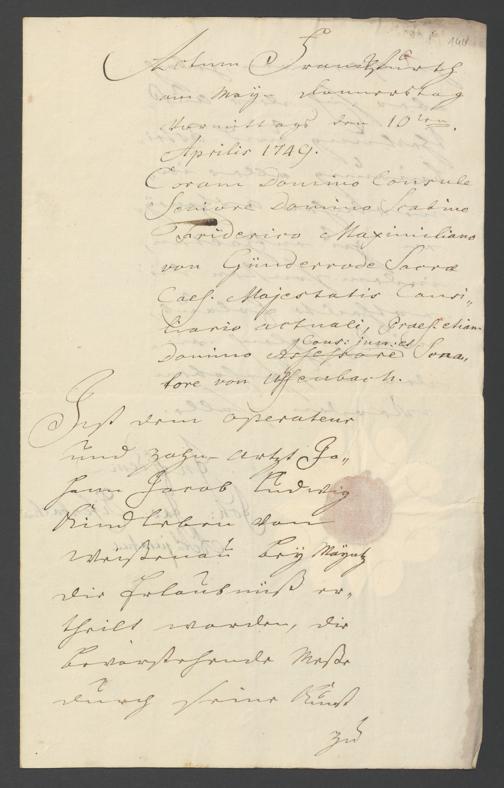 144
Actum Franckfurth
am Mayn Donnerstag
Vormittags den 10ten.
Aprilis 1749.
Coram Domino Consule
Seniore Domino Scabino
Friderico Maximiliano
von Günderrode Sacræ
Cæs. Majestatis Consi„
liario actuali, Præs. etiam
Cons: jun: et
Domino Assessore Sena„
tore von Uffenbach.
Ist dem operateur
und Zahn-Artzt Jo„
hann Jacob Ludwig
Kindleben von
Weißenau bey Mäyntz
die Erlaubnüß er„
theilt worden, die
bevorstehende Meße
durch seine Kunst
zu